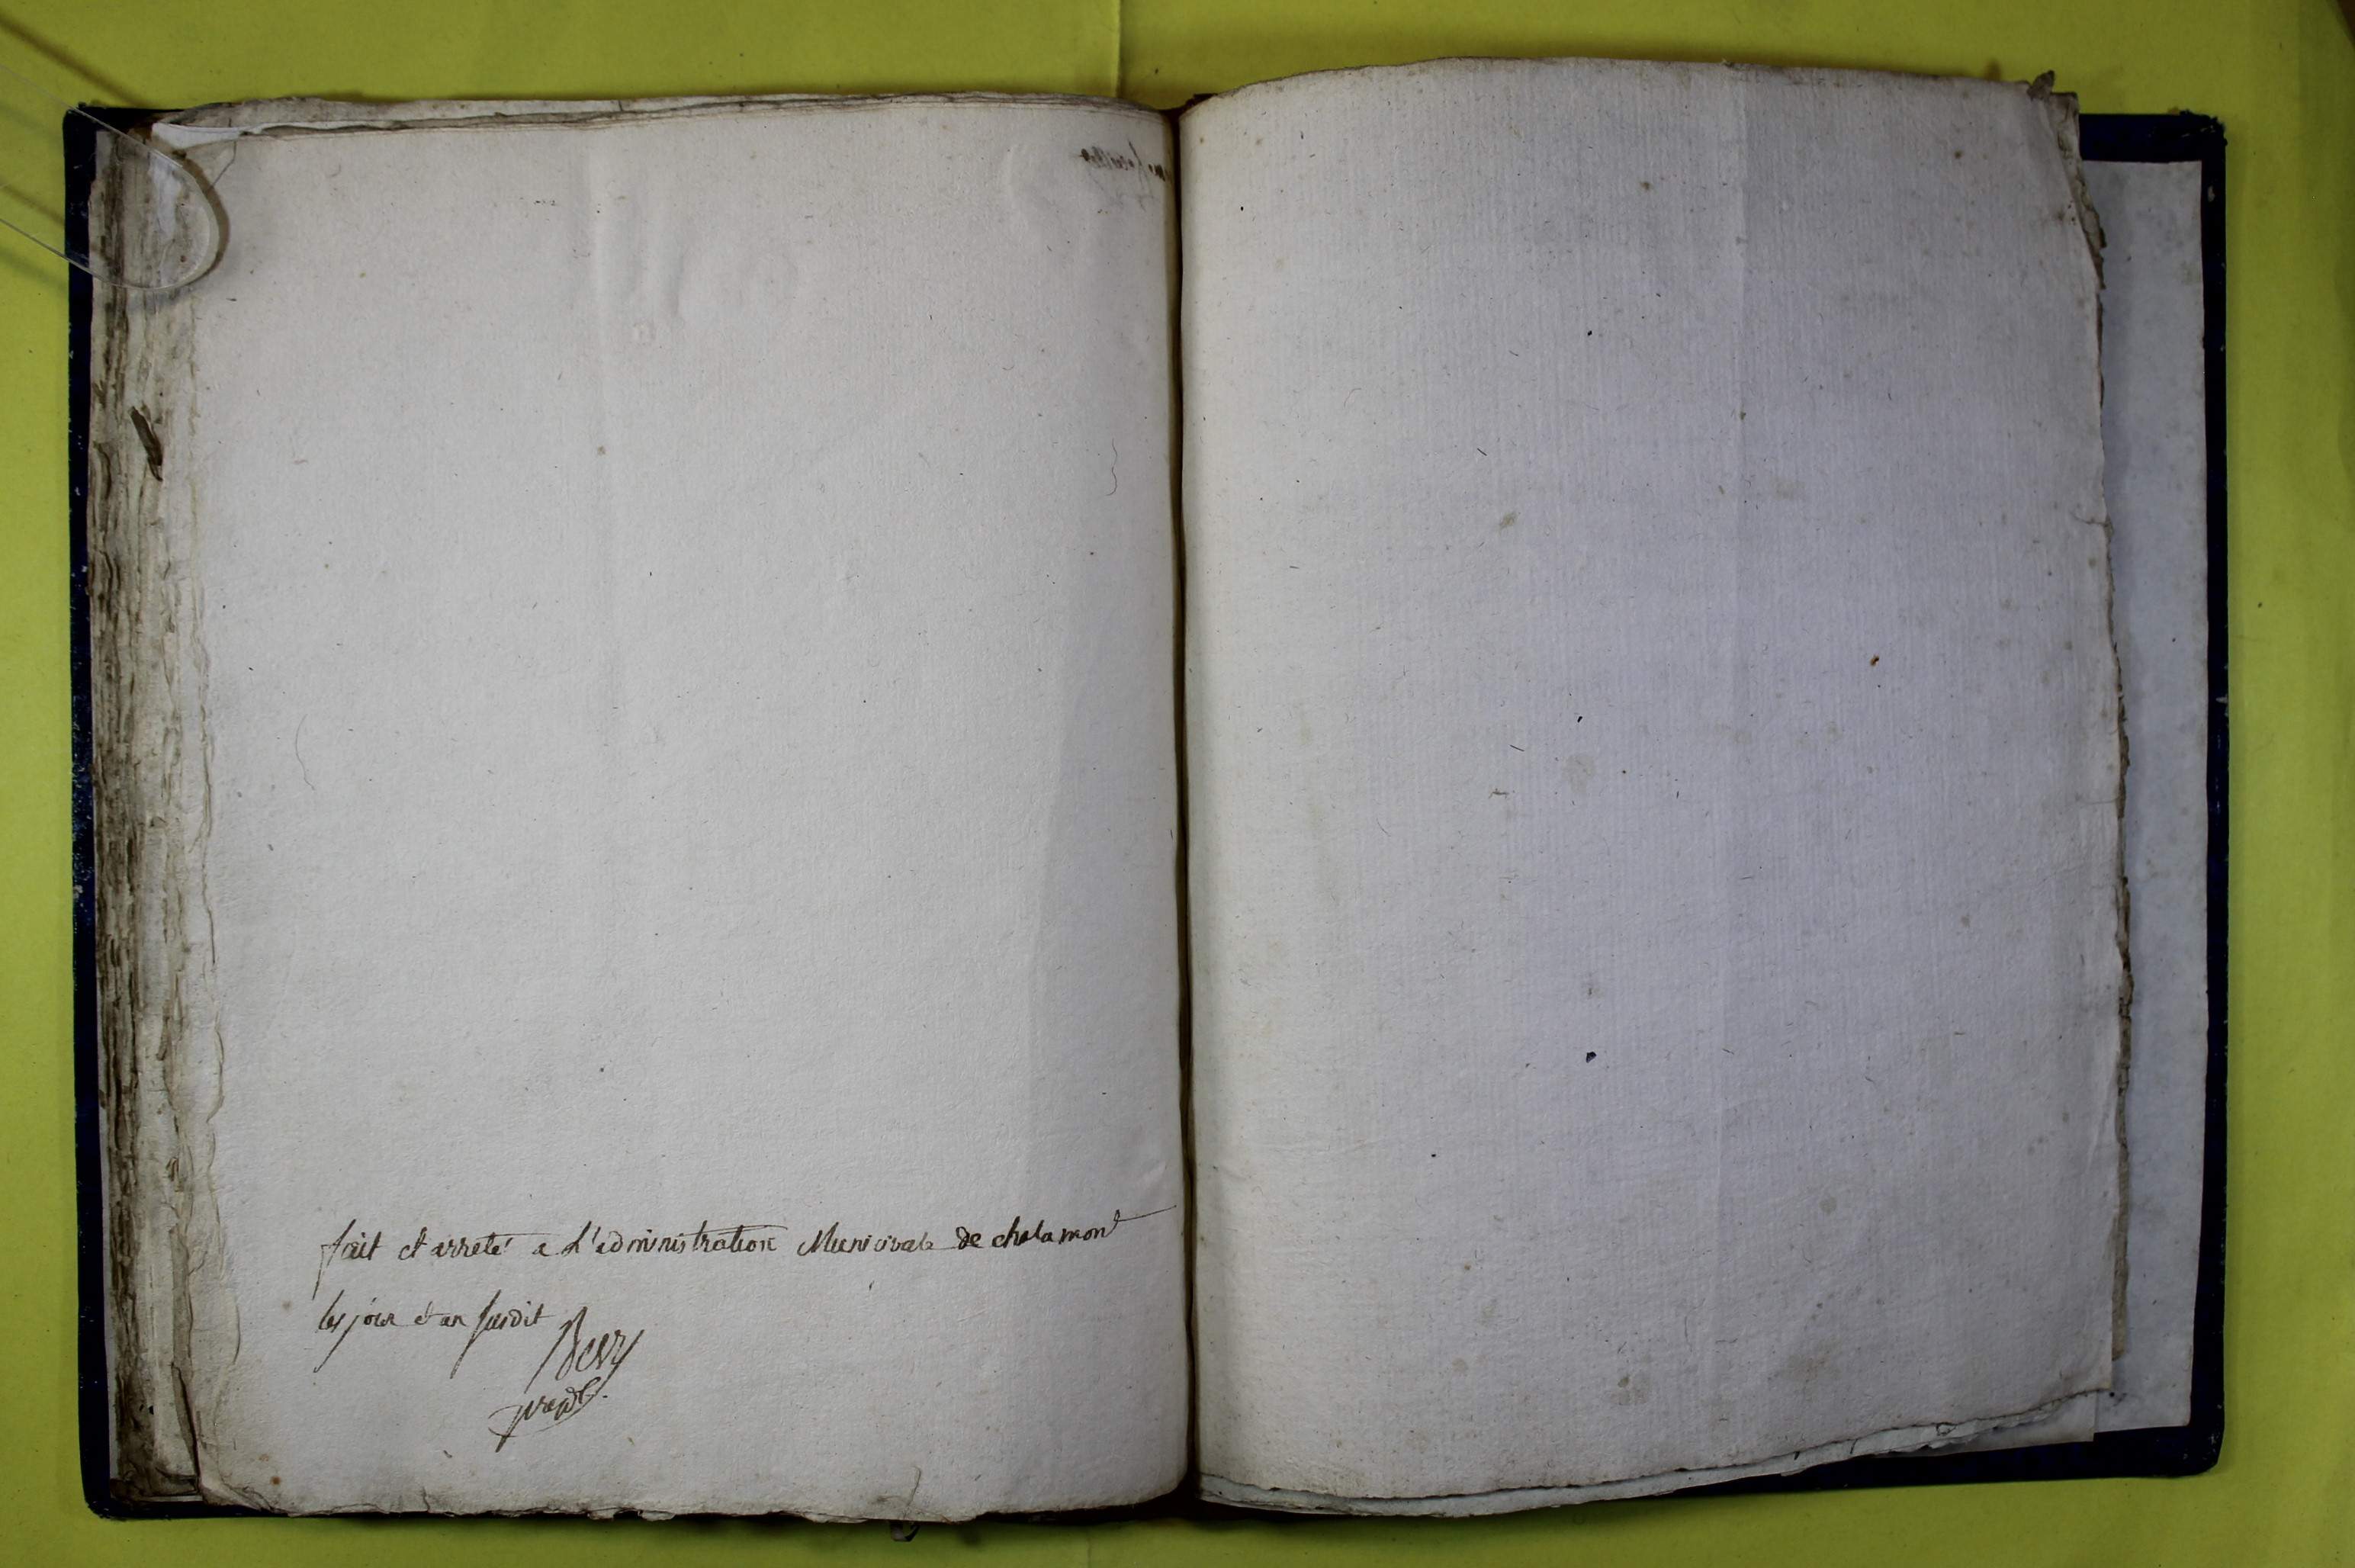 fait et arreté a L'administration Municipale de chalamont
les jour et an susdit